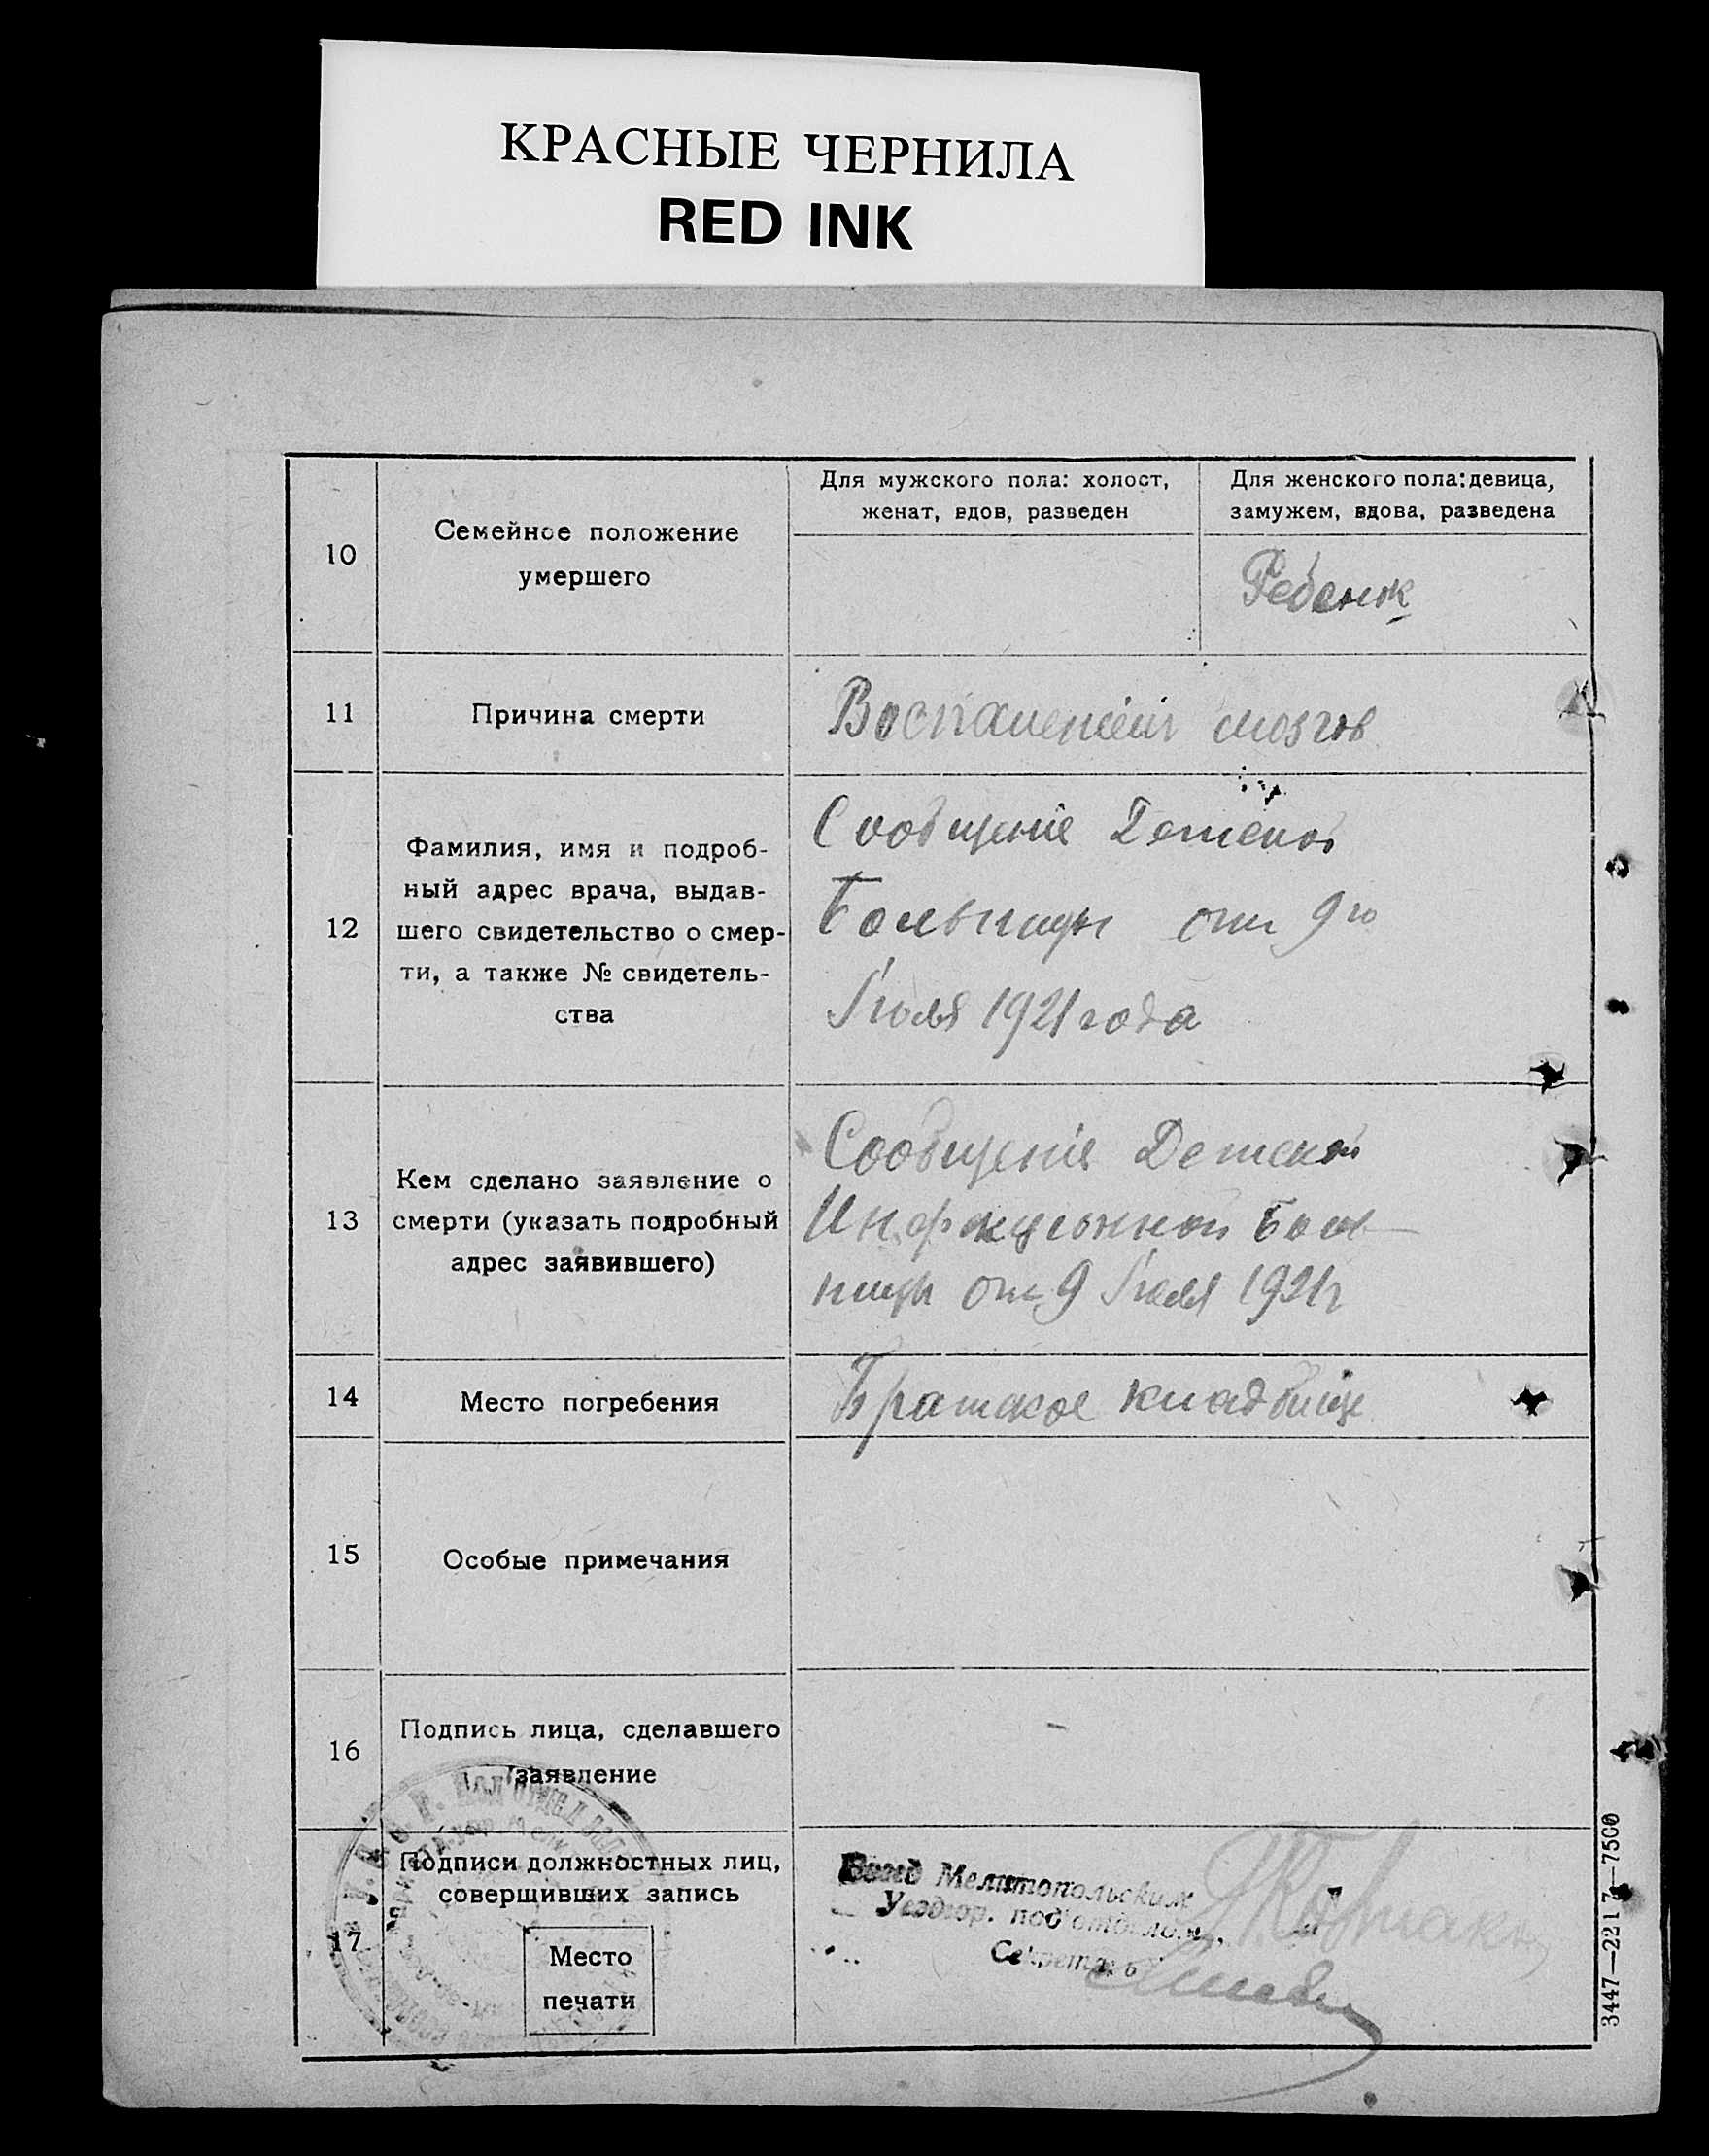 КРАСНЫЕ ЧЕРНИЛА
RED INK
10
Семейное положение
умершего
Для мужского пола: холост,
женат, вдов, разведен
Для женского пола: девица,
замужем, вдова, разведена
Ребенок
11
Причина смерти
Воспаление мозгов
12
Фамилия, имя и подроб-
ный адрес врача, выдав-
шего свидетельство о смер-
ти, а также № свидетель-
ства
Сообщение Детской
Больницы от 9го
Июля 1921 года
13
Кем сделано заявление о
смерти (указать подробный
адрес заявившего)
Сообщение Детской
Инфекционной Боль-
ницы от 9 Июля 1921г
14
Место погребения
Братское кладбище
15
Особые примечания
16
Подпись лица, сделавшего
заявление
17
Подписи должностных лиц,
совершивших запись
Место
печати
Мелитопольским
Уездгор. подотделом
Секретарь
3447—2217—7500